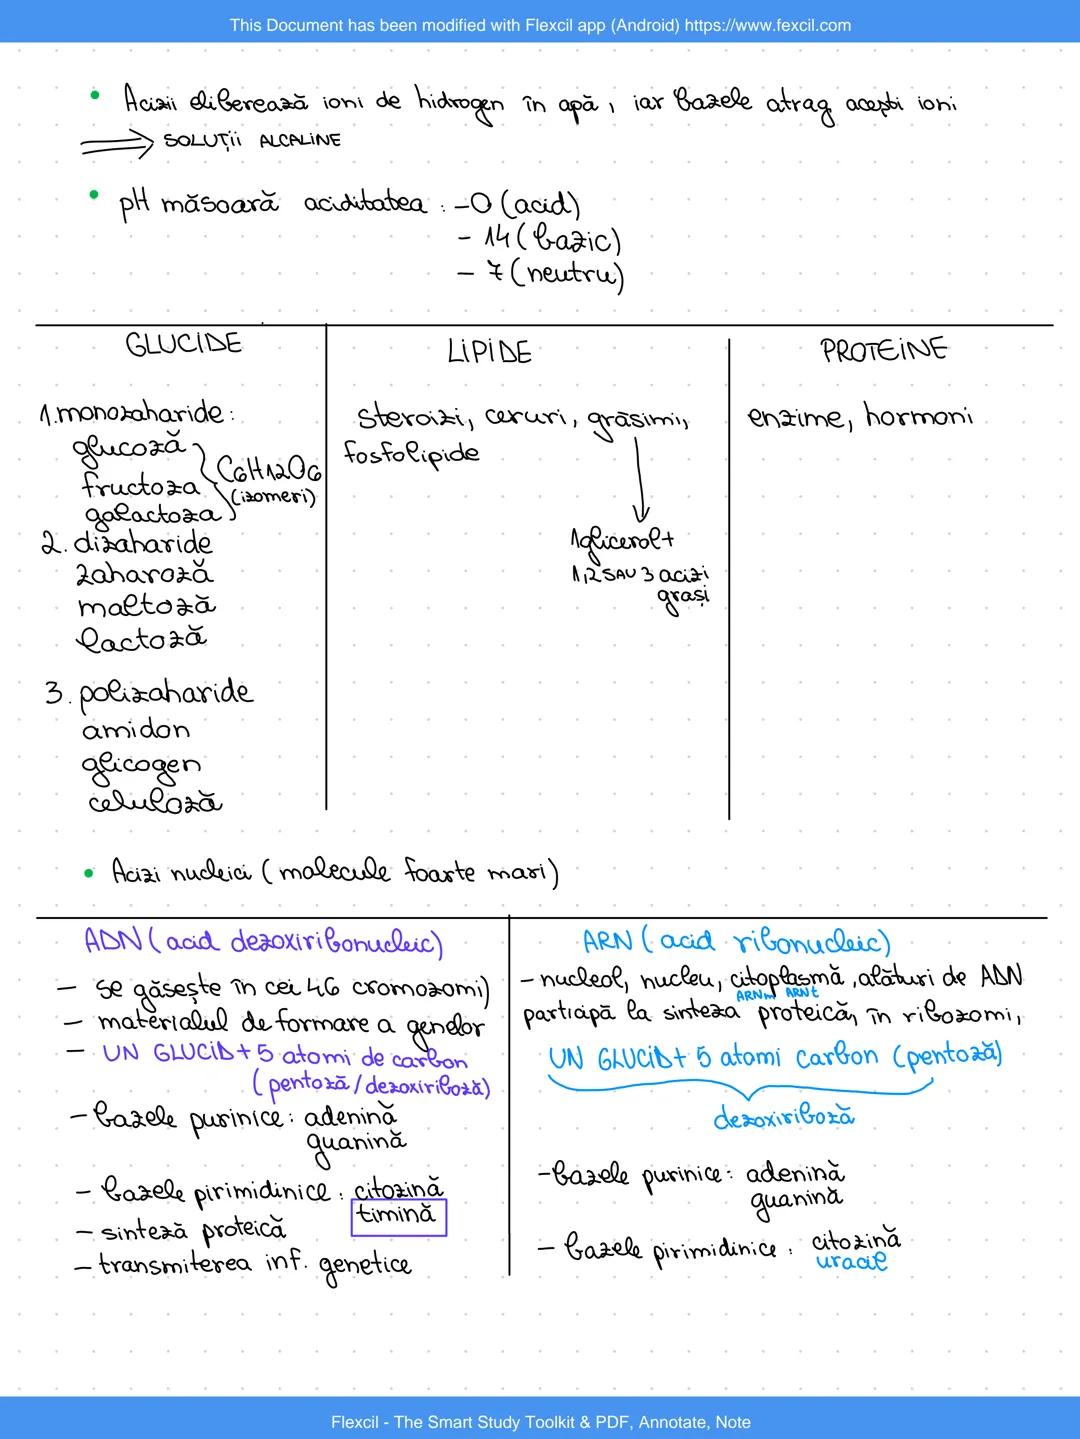 This Document has been modified with Flexcil app (Android) https://www.fexcil.com
• Acizii eliberează ioni de hidrogen în apă, iar bazele atrag acești ioni
⟹ SOLUȚII ALCALINE
• pH măsoară aciditatea : -0 (acid)
- 14 (bazic)
- 7 (neutru)
GLUCIDE
1. monozaharide:
glucoză
fructoza
galactoza
C6H12O6
(izomeri)
2. dizaharide
zaharoză
maltoză
lactoză
3. polizaharide
amidon
glicogen
celuloză
LIPIDE
steroizi, ceruri, grăsimi,
fosfolipide
1glicerol+
1,2 SAU 3 acizi
grași
PROTEINE
enzime, hormoni
• Acizi nucleici (molecule foarte mari)
ADN (acid dezoxiribonucleic)
- se găsește în cei 46 cromozomi)
- materialul de formare a genelor
- UN GLUCID + 5 atomi de carbon
(pentoză/dezoxiriboză)
- bazele purinice: adenină
guanină
- bazele pirimidinice: citozină
timină
- sinteză proteică
- transmiterea inf. genetice
ARN (acid ribonucleic)
- nucleol, nucleu, citoplasmă, alături de ADN
ARNm ARNt
participă la sinteza proteică, în ribozomi,
UN GLUCID + 5 atomi carbon (pentoză)
dezoxiriboză
- bazele purinice: adenină
guanină
- bazele pirimidinice: citozină
uracil
Flexcil - The Smart Study Toolkit & PDF, Annotate, Note